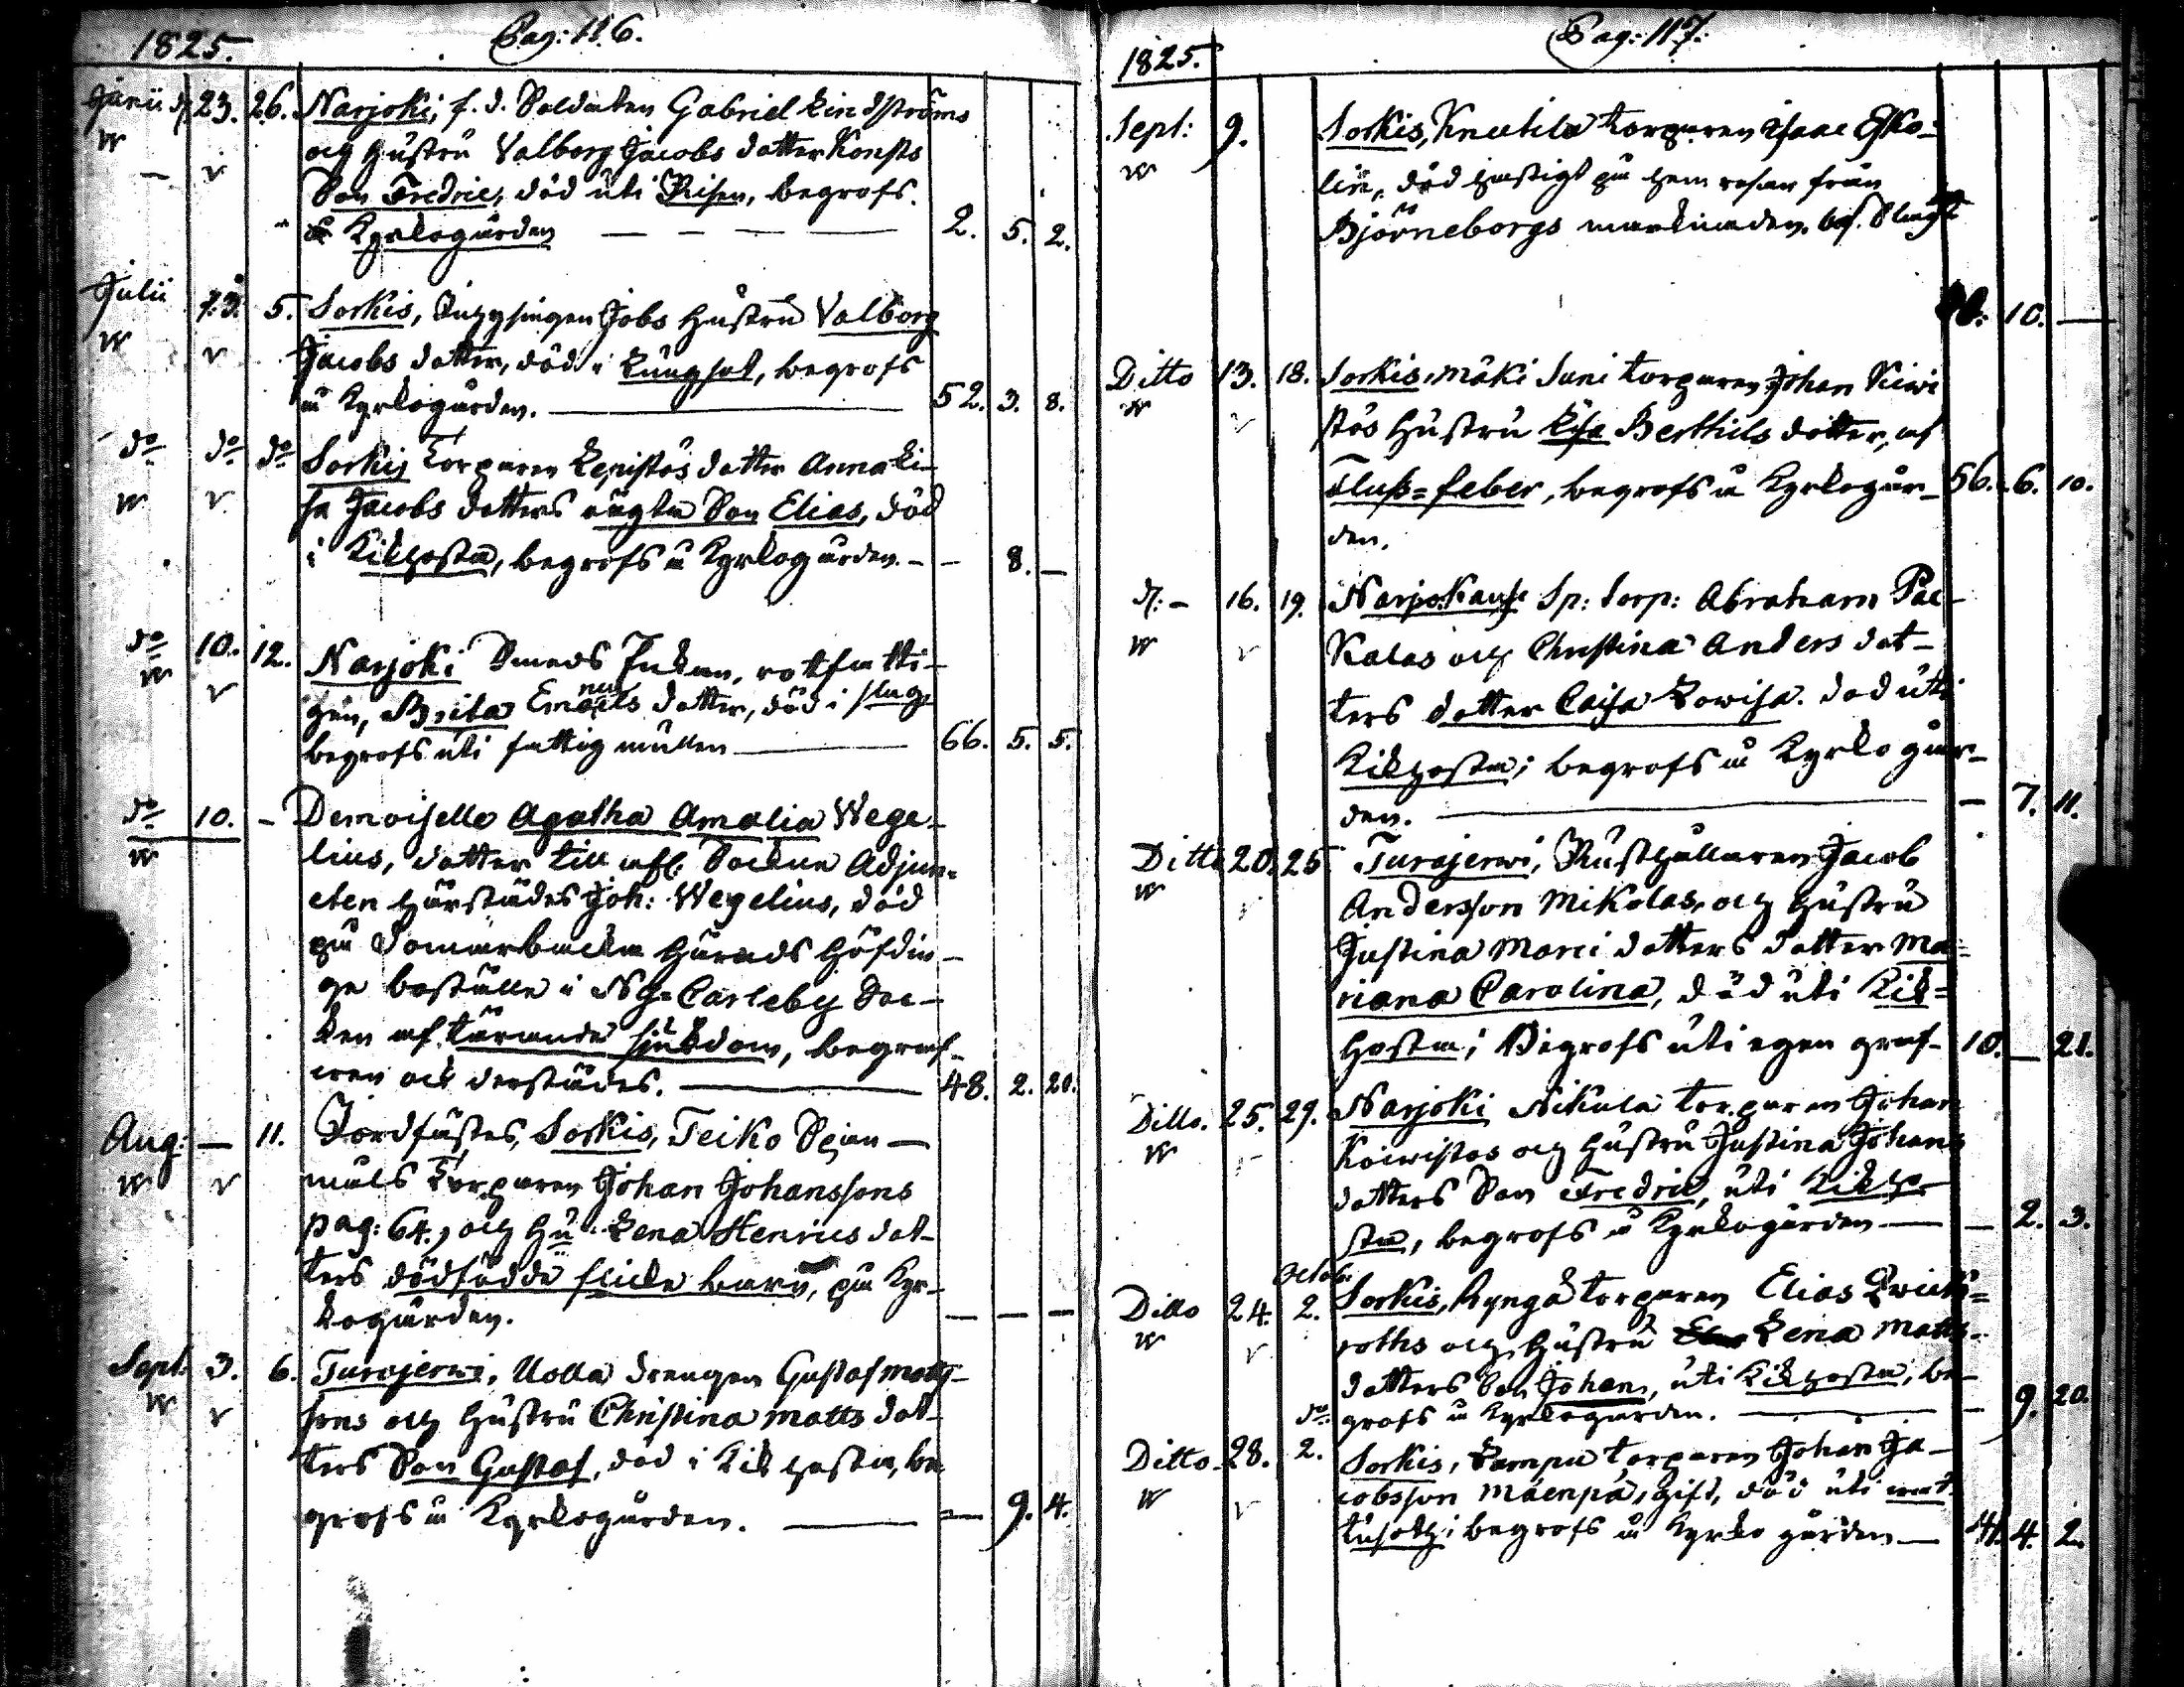 1825. Pag: 116.
Junii d. 23. 26. Narjoki, f. d. Soldaten Gabriel Lindströms
och Hustru Valborg Jacobs dotter Konsts
Son Fredric, död uti Risen, begrofs
å Kyrkogården 2. 5. 2.
Julii 5. Sorkis, Inhysingen Jobs Hustru Valborg
Jacobs dotter, död i Lungsot, begrofs
å Kyrkogården. 52. 3. 8.
do do do Sorkis Torparen Lepistös dotter Anna Li-
sa Jacobs dotters oägta Son Elias, död
i Kikhosta, begrofs å Kyrkogården. - - 8. -
do 10. 12. Narjoki Smeds Enkan, rotfatti-
gen, Brita dotter, död i slag
begrofs uti fattig mullen 66. 5. 5.
do 10. - Demoiselle Agatha Amalia Wege-
lius, dotter till afl. Sockne Adjun-
cten härstädes Joh: Wegelius, död
på Domarbacka Härads Höfdin-
ge boställe i Ny-Carleby Soc-
ken af tärande sjukdom, begraf-
wen ock derstädes. 48. 2. 20.
Aug: - 11. Jordfästes, Sorkis, Teiko Spján-
måls Torparen Johan Johanssons
pag: 64., och Hu: Lena Henrics dot-
ters dödfödde flicke barn, på Kyr-
kogården. - - -
Sept. 3. 6. Turajerwi, Uolla drengen Gustaf Matts-
sons och Hustru Christina Matts dot-
ters Son Gustaf, död i Kikhosta, be
grofs å Kyrkogården. - 9. 4.
1825. Pag: 117.
Sept: 9. Sorkis, Knutila Torparen Isaac Esko-
lin, död hastigt på hem resan från
Björneborgs marknaden. af. Slag
10. -
Ditto 13. 18. Sorkis, Mäki Suni Torparen Johan Kiwi
stös Hustru Lisa Berthils dotter, af
Fluss=feber, begrofs å Kyrkogår- 56. 6. 10.
den.
d: - 16. 19. Narjokause Sp: Torp: Abraham Pac-
kalas och Christina Anders dot-
ters dotter Caisa Lowisa. död uti
Kikhosta; begrofs å Kyrkogår-
den. - 7. 11.
Ditto 20. 25 Turajerwi, Rusthållaren Jacob
Andersson Mikolas, och Hustru
Justina Marci dotters dotter Ma=
riana Carolina, död uti Kik=
hosta; Begrofs uti egen graf- 10. - 21.
Ditto. 25. 29. Narjoki Nikula Torparen Johan
Koiwistos och Hustru Justina Johans
dotters Son Fredric, uti Kikho-
sta, begrofs å Kyrkogården - - 2. 3.
Octob:
Ditto 24. 2. Sorkis, Rynga Torparen Elias Qwick=
roths och Hustru Lena Matts
dotters Son Johan, uti Kikhosta, be-
grofs å Kyrkogården. - 9. 20.
do
Ditto 28. 2. Sorkis, Lampu Torparen Johan Ja-
cobsson Mäenpä, gift, död uti
begrofs å Kyrko gården - 4. 2.